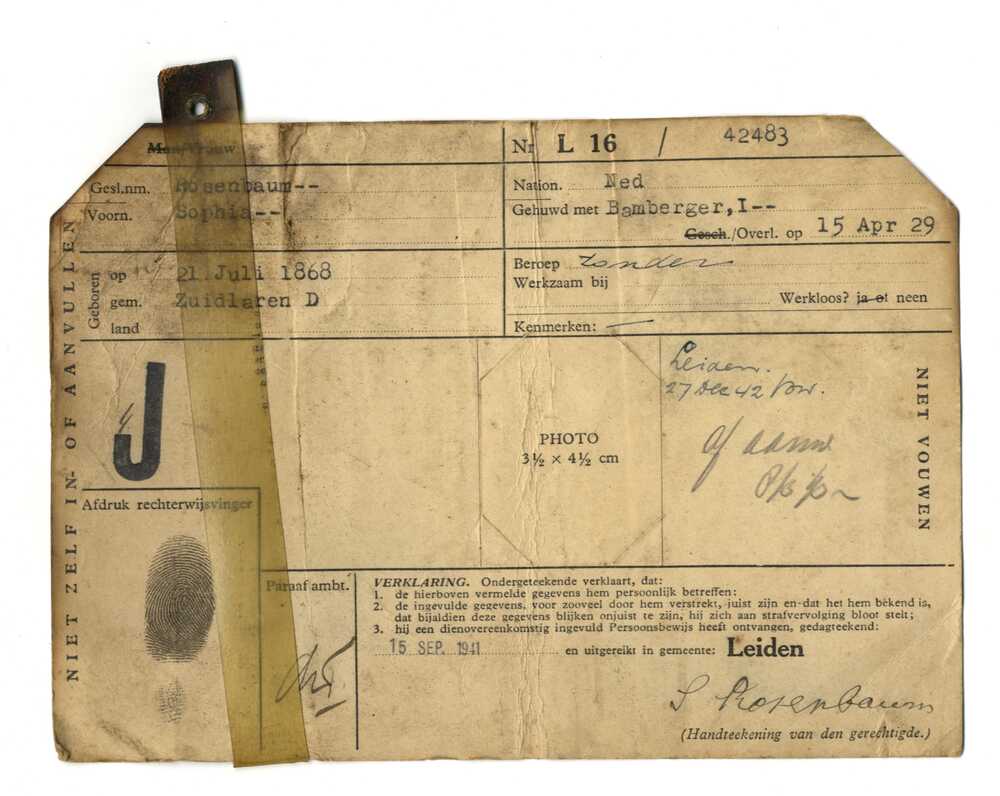 Man/Vrouw
Nr L 16 / 42483
Gesl.nm. Rosenbaum--
Voorn. Sophia--
Nation. Ned
Gehuwd met Bamberger,I--
Gesch./Overl. op 15 Apr 29
Geboren
op 21 Juli 1868
gem. Zuidlaren D
land
Beroep zonder
Werkzaam bij
Werkloos? ja of neen
Kenmerken: —
NIET ZELF IN- OF AANVULLEN
J
PHOTO
3½ × 4½ cm
Leiden.
27 Dec 42
NIET VOUWEN
Afdruk rechterwijsvinger
Paraaf ambt.
VERKLARING. Ondergeteekende verklaart, dat:
1. de hierboven vermelde gegevens hem persoonlijk betreffen;
2. de ingevulde gegevens, voor zooveel door hem verstrekt, juist zijn en dat het hem bekend is,
dat bijaldien deze gegevens blijken onjuist te zijn, hij zich aan strafvervolging bloot stelt;
3. hij een dienovereenkomstig ingevuld Persoonsbewijs heeft ontvangen, gedagteekend:
15 SEP. 1941 en uitgereikt in gemeente: Leiden
S Rosenbaum
(Handteekening van den gerechtigde.)